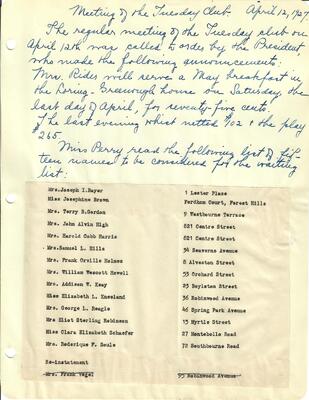 Meeting of the Tuesday Club. April 12, 1927.
The regular meeting of the Tuesday club on
April 12th was called to order by the President,
who made the following announcements:
Mrs. Rides will serve a May breakfast in
the Loring-Greenough house on Saturday the
last day of April, for seventy-five cents.
The last evening whist netted $102 & the play
$265.
Miss Perry read the following list of fif-
teen names to be considered for the waiting
list:
Mrs. Joseph I. Bayer 1 Lester Place
Miss Josephine Brown Ferdham Court, Forest Hills
Mrs. Terry B. Gordon 9 Westbourne Terrace
Mrs. John Alvin High 821 Centre Street
Mrs. Harold Cobb Harris 821 Centre Street
Mrs. Samuel L. Hills 34 Seaverns Avenue
Mrs. Frank Orville Holmes 8 Alveston Street
Mrs. William Wescott Howell 53 Orchard Street
Mrs. Addison W. Keay 23 Boylston Street
Miss Elizabeth L. Kneeland 56 Robinwood Avenue
Mrs. George L. Reagle 46 Spring Park Avenue
Mrs. Eliot Sterling Robinson 13 Myrtle Street
Miss Clara Elizabeth Schaefer 27 Montebello Road
Mrs. Roderique F. Soule 72 Southbourne Road
Re-instatement
Mrs. Frank Vogel 95 Robinwood Avenue